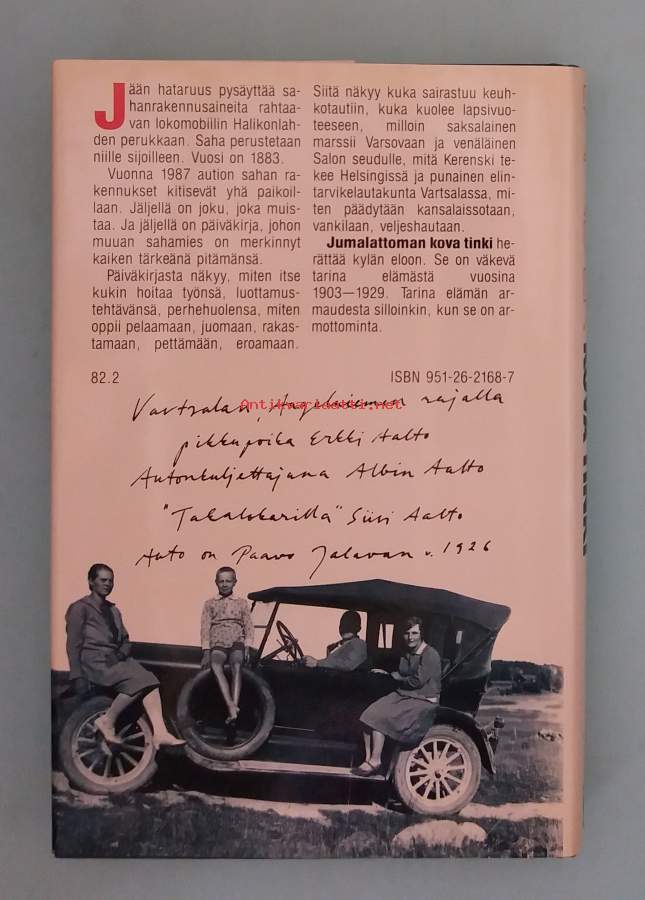 Jään hataruus pysäyttää sa-
hanrakennusaineita rahtaa-
van lokomobiilin Halikonlah-
den perukkaan. Saha perustetaan
niille sijoilleen. Vuosi on 1883.
Vuonna 1987 aution sahan ra-
kennukset kitisevät yhä paikoil-
laan. Jäljellä on joku, joka muis-
taa. Ja jäljellä on päiväkirja, johon
muuan sahamies on merkinnyt
kaiken tärkeänä pitämänsä.
Päiväkirjasta näkyy, miten itse
kukin hoitaa työnsä, luottamus-
tehtävänsä, perhehuolensa, miten
oppii pelaamaan, juomaan, rakas-
tamaan, pettämään, eroamaan.
Siitä näkyy kuka sairastuu keuh-
kotautiin, kuka kuolee lapsivuo-
teeseen, milloin saksalainen
marssii Varsovaan ja venäläinen
Salon seudulle, mitä Kerenski te-
kee Helsingissä ja punainen elin-
tarvikelautakunta Vartsalassa, mi-
ten päädytään kansalaissotaan,
vankilaan, veljeshautaan.
Jumalattoman kova tinki he-
rättää kylän eloon. Se on väkevä
tarina elämästä vuosina
1903—1929. Tarina elämän ar-
maudesta silloinkin, kun se on ar-
mottominta.
82.2
ISBN 951-26-2168-7
Vartsalan, Angelniemen rajalla
Antikvariaatti.net
pikkupoika Erkki Aalto
Autonkuljettajana Albin Aalto
"Takalokarilla" Siiri Aalto
Auto on Paavo Jalavan v. 1926